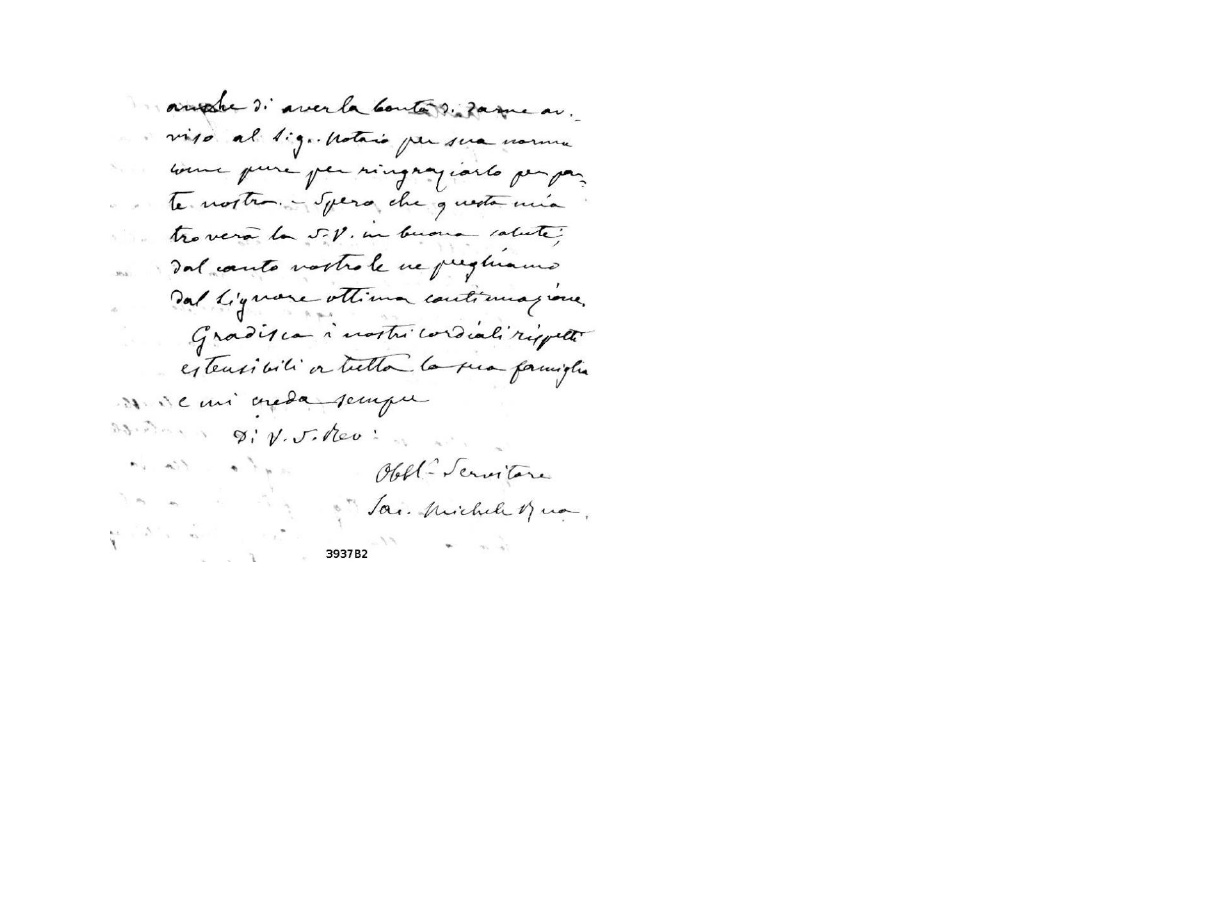 anche di aver la bontà di darne av-
viso al Sig. Notaio per sua norma
come pure per ringraziarlo per par-
te nostra. - Spero che questa mia
troverà la S.V. in buona salute;
dal canto nostro le ne preghiamo
dal Signore ottima continuazione.
Gradisca i nostri cordiali rispetti
estensibili a tutta la sua famiglia
e mi creda sempre
Di V. S. Rev:
Obbl. Servitore
Sac. Michele Rua.
3937B2